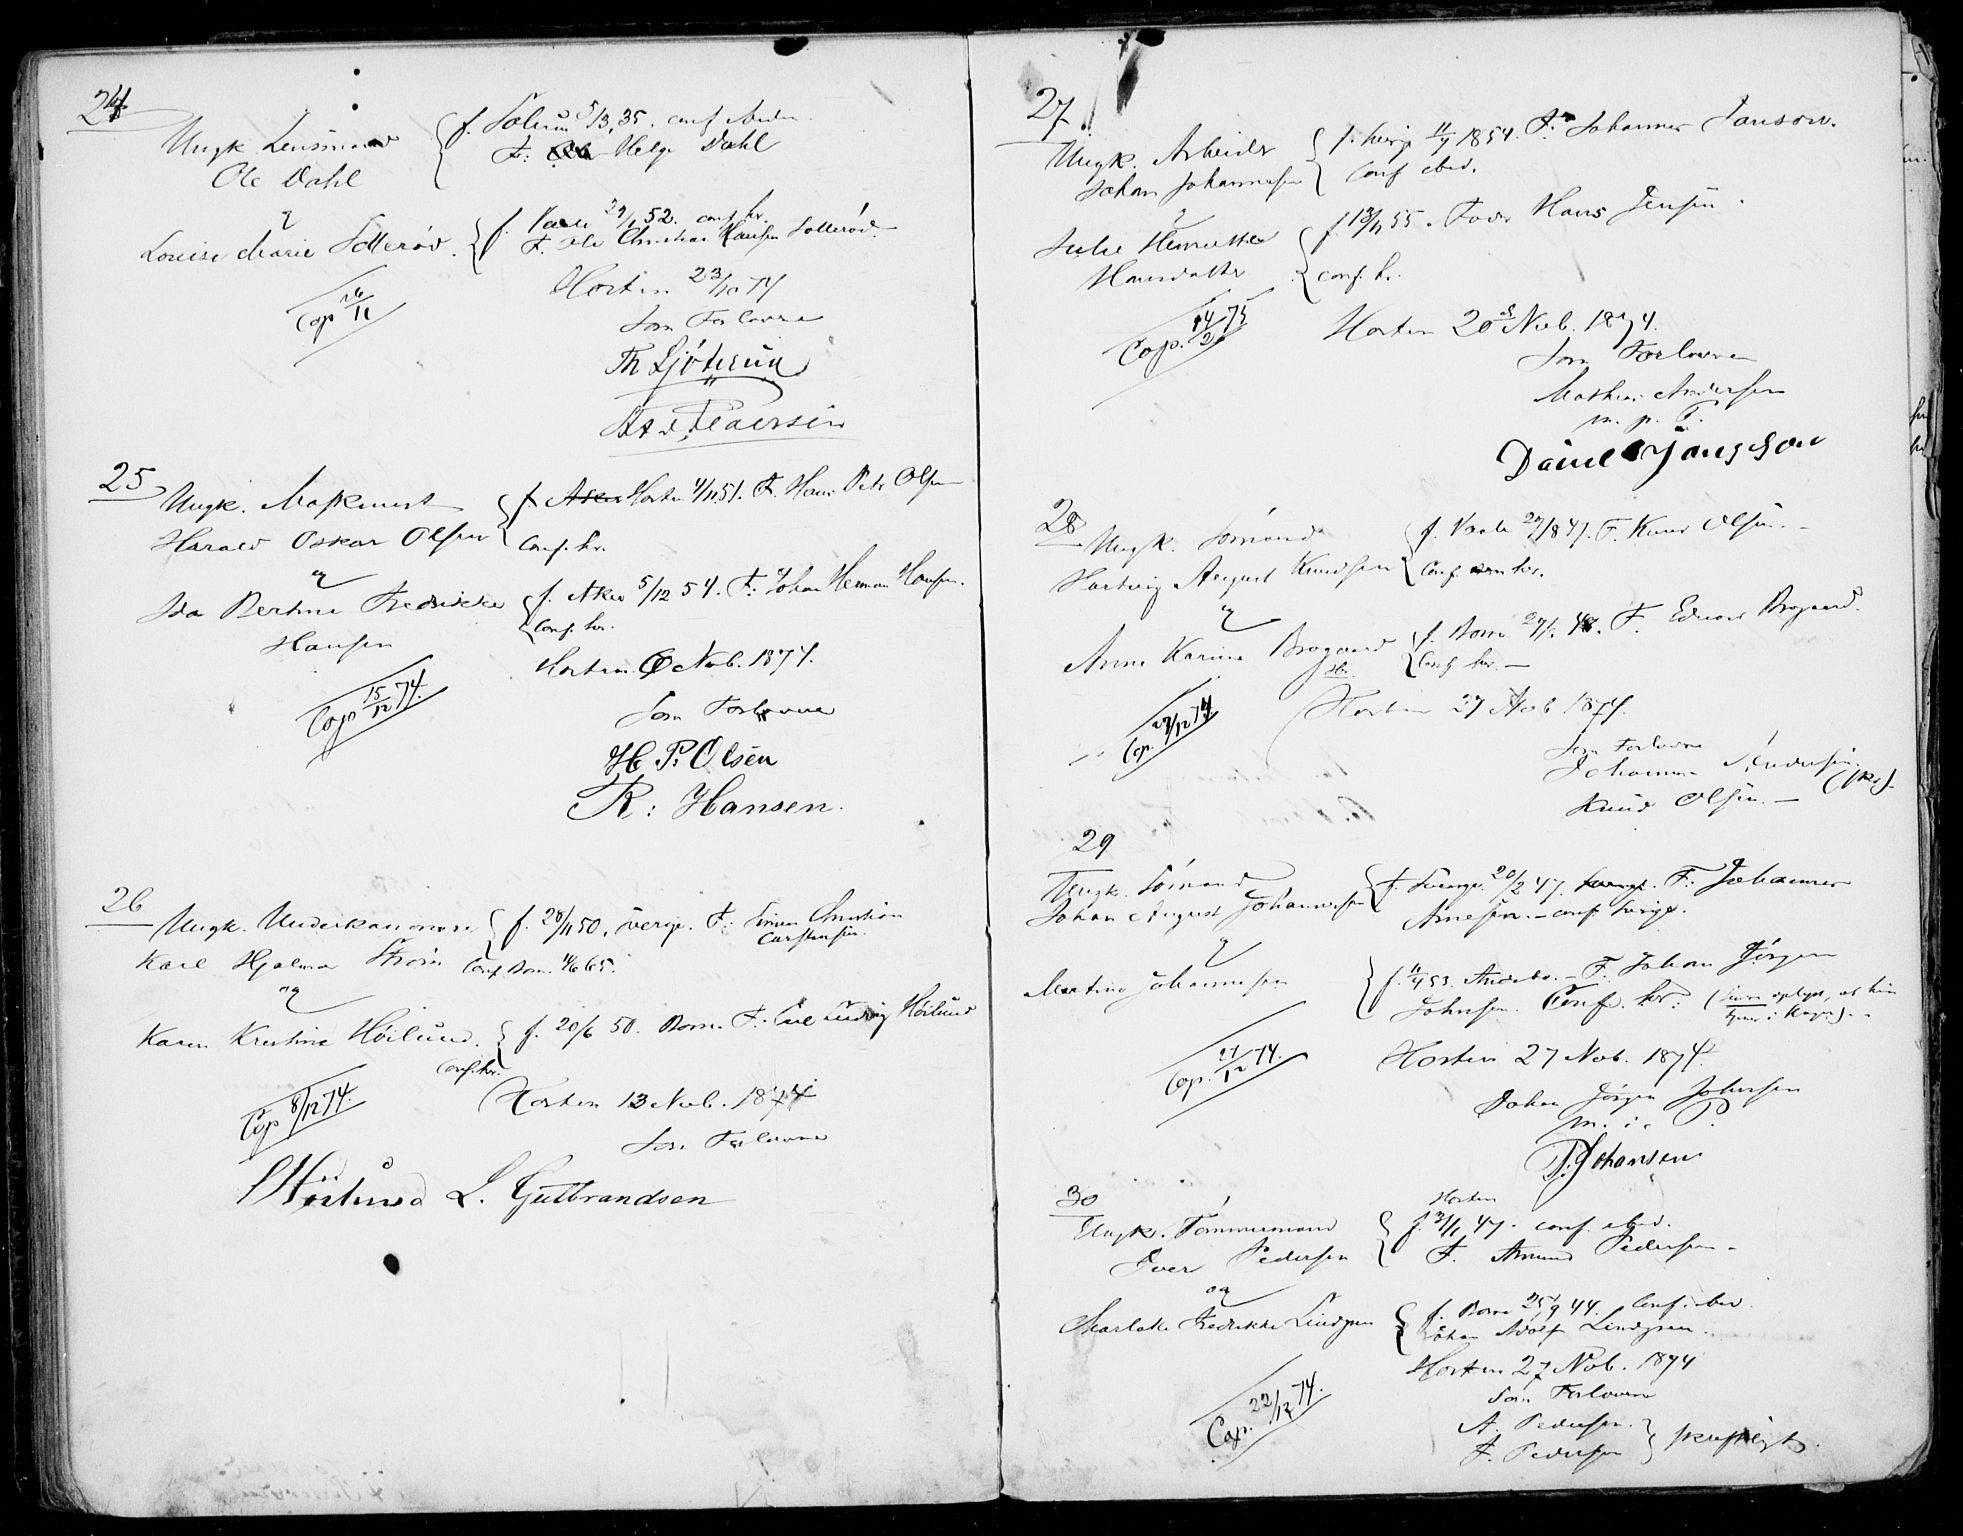 24
Ungk. Lensmand
Ole Dahl
f. Solum 5/3 35. conf.
F: Helge Dahl
&
Louise Marie Solleröd.
f. Vaale 29/1 52. conf. hr.
F. Ole Christian Hansen Solleröd.
Cop 26/11
Horten 23/10 74
Som Forlovere
25
Ungk. Maskinist
Harald Oskar Olsen
f. Horten 4/11 51. F. Hans Petr Olsen
Conf. hr.
og
Ida Bertine Fredrikke
Hansen
f. Aker 5/12 54. F: Johan Herman Hansen.
Conf. hr.
Cop 15/12 74.
Horten 6 Nob. 1874.
Som Forlovere
H P. Olsen
R: Hansen.
26
Ungk. Underkanoner
Karl Hjalmar Ström
f. 28/11 50. F: Christian
Carstensen.
Conf. Borre 65.
og
Karen Kristine Höilund.
f. 20/6 50. Borre. F. Höilund
Conf. hr.
Cop 8/12 74.
Horten 13 Nob. 1874
Som Forlovere
Höilund L. Gulbrandsen
27
Ungk. Arbeider
Johan Johannesen
f. Sverge 11/9 1854. F: Johannes Janson.
Conf. ibid.
&
Julie Henriette
Hansdatter
f. 13/11 55. Fader Hans Jensen.
conf. hr.
Cop. 14/2 75
Horten 20de Nob. 1874.
Som Forlovere
Mathias Andersen
m. p. P.
Daniel Jansson
28
Ungk. Sömand
Hartvig August Knudsen
f. Vaale 27/8 47. F. Knud Olsen.
Conf. hr.
og
Anne Karine Brogaard
f. Borre 27/1 48. F. Edvard Brogaard.
Conf. hr.
Cop. 27/12 74
Horten 27 Nob 1874.
Som Forlovere
Johannes Andersen.
Knud Olsen. (skr.)
29
Ungk. Sömand
Johan August Johannesen
f. Sverge 20/2 47. F: Johannes
Arnesen. conf. Sverge.
&
Martine Johannesen
f. 11/4 53. Andebo. F. Johan Jörgen
Johnsen. Conf. hr.
Cop. 27/12 74.
Horten 27 Nob. 1874.
Johan Jörgen Johnsen
m. i. P.
P. Johansen
30
Ungk. Tömmermand
Iver Pedersen
Horten
f. 3/1 47. conf. ibid.
F. Amund Pedersen
og
Charlotte Fredrikke Lindgren
f. Borre 25/9 44. Conf. ibid.
Johan Adolf Lindgren.
Cop. 22/12 74.
Horten 27 Nob. 1874
Som Forlovere
A. Pedersen.
F. Pedersen
skriftligt.